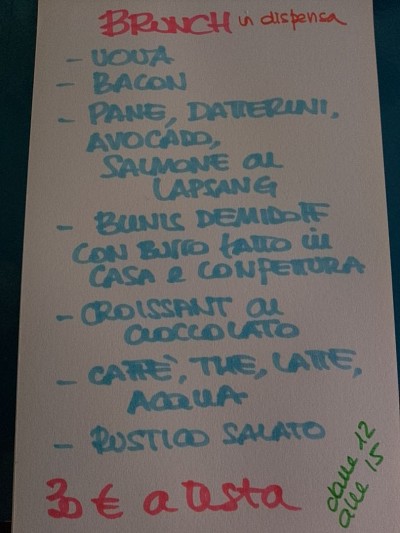 BRUNCH in dispensa
- UOVA
- BACON
- PANE, DATTERINI,
AVOCADO,
SALMONE al
LAPSANG
- BLINIS DEMIDOFF
CON BURRO fatto in
CASA e CONFETTURA
- CROISSANT al
CIOCCOLATO
- CAFFÈ, THE, LATTE,
ACQUA
- RUSTICO SALATO
30 € a testa
dalle 12
alle 15